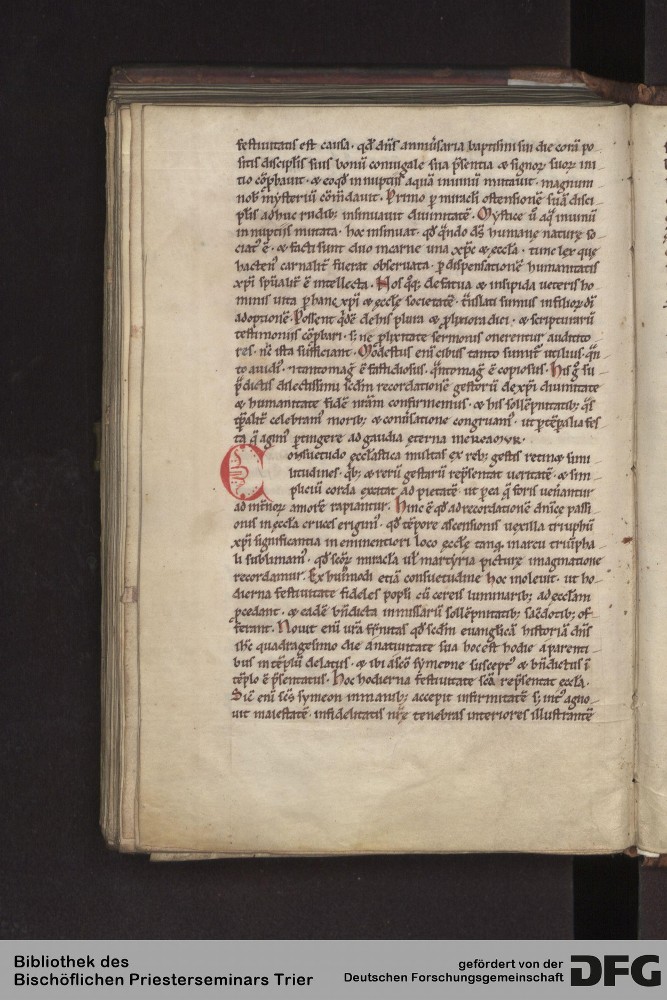 festiuitatis est causa · qđ dn̄s anniuˀsaria baptismi sui die conuˀ po
sitis discipl̄is suis bonū coniugale sua p̄sentia & signoꝝ suoꝝ ini
tio cōp̄bauit · & eo qđ in nuptiis aquā in uinū mutauit · magnum
nob̄ mysteriū cōm̄dauit · Primo ꝑ miracl̄i ostensionē sua disci
pl̄is adhuc rudib; insinuauit diuinitatē · Mystice ū aq̄ in uinū
in nuptiis mutata · hoc insinuat · qđ qn̄do ds̄ humanę naturę so
ciatˀ ē · & facti sunt duo in carne una xp̄c & eccl̄a · tunc lex quę
hactenˀ carnalit̄ fuerat obseruata · ꝑ dispensationē humanitatis
xp̄i sp̄ualit̄ ē intellecta · Nos q̄q; de fatua & insipida ueteris ho
minis uita ꝑ hanc xp̄i & eccl̄ę societatē · t̄nslati sumus in filioꝝ dī
adoptionē · Possent q̄dē de his plura & ꝓlixiora dici · & scripturarū
testimoniis cōp̄bari · s; ne ꝓlixitate sermonis onerentur audito
res · nc̄ ista sufficiant · Modestus eni cibus tanto sumit̄ utilius · q̄n
to auidiˀ · & tanto magˀ ē fastidiosus · q̄nto magˀ ē copiosus · His g̊ su
p̄dictis dilectissimi sc̄dm recordationē gestoꝝ de xp̄i diuinitate
& humanitate fidē nr̄am confirmemus · & his sollēpnitatib; q̄s
tp̄alit̄ celebramˀ morib; & conuˀsatione congruamˀ · ut ꝑ tēp̄alia fes
ta q̄ agimˀ ꝑtingere ad gaudia ęterna mereamur ·
Consuetudo eccl̄astica multas ex reb; gestis retinet simi
litudines · q̄b; & rerū gestarū rep̄sentat ueritatē · & sim
pliciū corda excitat ad pietatē · ut ꝑ ea q̄ foris uenˀantur
ad intˀnoꝝ amorē rapiantur · Hinc ē qđ ad recordationē dn̄icę passi
onis in eccl̄a cruces erigimˀ · qđ tēpore ascensionis uexilla triūphū
xp̄i significantia in eminentiori loco eccl̄ę tanq̄ in arcu triūpha
li sublimamˀ · qđ sc̄oꝝ miracl̄a ul̄ martyria picturę imaginatione
recordamur · Ex huiˀmodi etiā consuetudine hoc inoleuit · ut ho
dierna festiuitate fideles popl̄i cū cereis luminarib; ad eccl̄am
p̄cedant · & eadē bn̄dicta in missarū sollēpnitatib; sac̄dotib; of
ferant · Nouit eni ur̄a fr̄nitas qđ sc̄dm euangelicā historiā dn̄s
ihc̄ quadragesimo die a natiuitate sua hoc est hodie a parenti
bus in tēplū delatus · & ibi a sc̄o symeone susceptˀ & bn̄dictus ī
tēplo ē p̄sentatus · Hoc hodierna festiuitate sc̄a rep̄sentat eccl̄a ·
Sic̄ eni sc̄s symeon in manib; accepit infirmitatē s; intˀ agno
uit maiestatē · infidelitatis nr̄ę tenebras interiores illustrantē
Bibliothek des
Bischöflichen Priesterseminars Trier
gefördert von der
Deutschen Forschungsgemeinschaft DFG